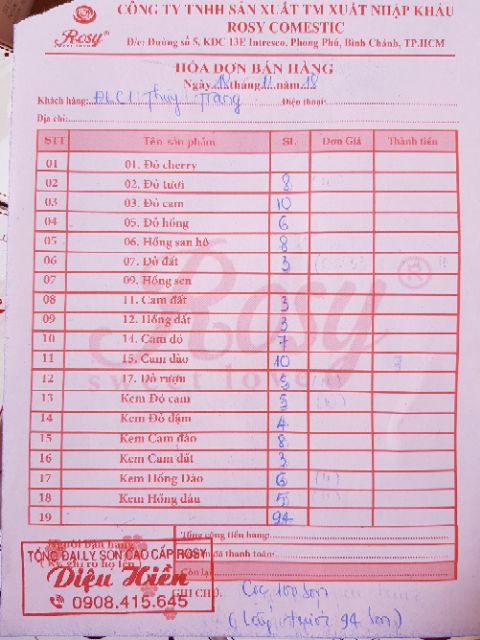 CÔNG TY TNHH SẢN XUẤT TM XUẤT NHẬP KHẨU
ROSY COMESTIC
Rosy
SWEET LOVER
Đ/c: Đường số 5, KDC 13E Intresco, Phong Phú, Bình Chánh, TP.HCM
HÓA ĐƠN BÁN HÀNG
Ngày 18 tháng 11 năm 18
Khách hàng: ĐLC1 Thùy Trang Điện thoại:
Địa chỉ:
STT Tên sản phẩm SL Đơn Giá Thành tiền
01 01. Đỏ cherry
02 02. Đỏ tươi 8
03 03. Đỏ cam 10
04 05. Đỏ hồng 6
05 06. Hồng san hô 8
06 07. Đỏ đất 3
07 09. Hồng sen
08 11. Cam đất 3
09 12. Hồng đất 3
10 14. Cam đỏ 7
11 15. Cam đào 10
12 17. Đỏ rượu 5
13 Kem Đỏ cam 5
14 Kem Đỏ đậm 4
15 Kem Cam đào 8
16 Kem Cam đất 3
17 Kem Hồng Đào 6
18 Kem Hồng dâu 5
19 94
Rosy
sweet lover
Người bán hàng
(Ký, ghi rõ họ tên)
Tổng cộng tiền hàng:
đã thanh toán:
Còn lại
TỔNG ĐẠI LÝ SON CAO CẤP ROSY
Diệu Hiền
0908.415.645
GHI CHÚ: Cọc 100 son
(Lấy trước 94 son)